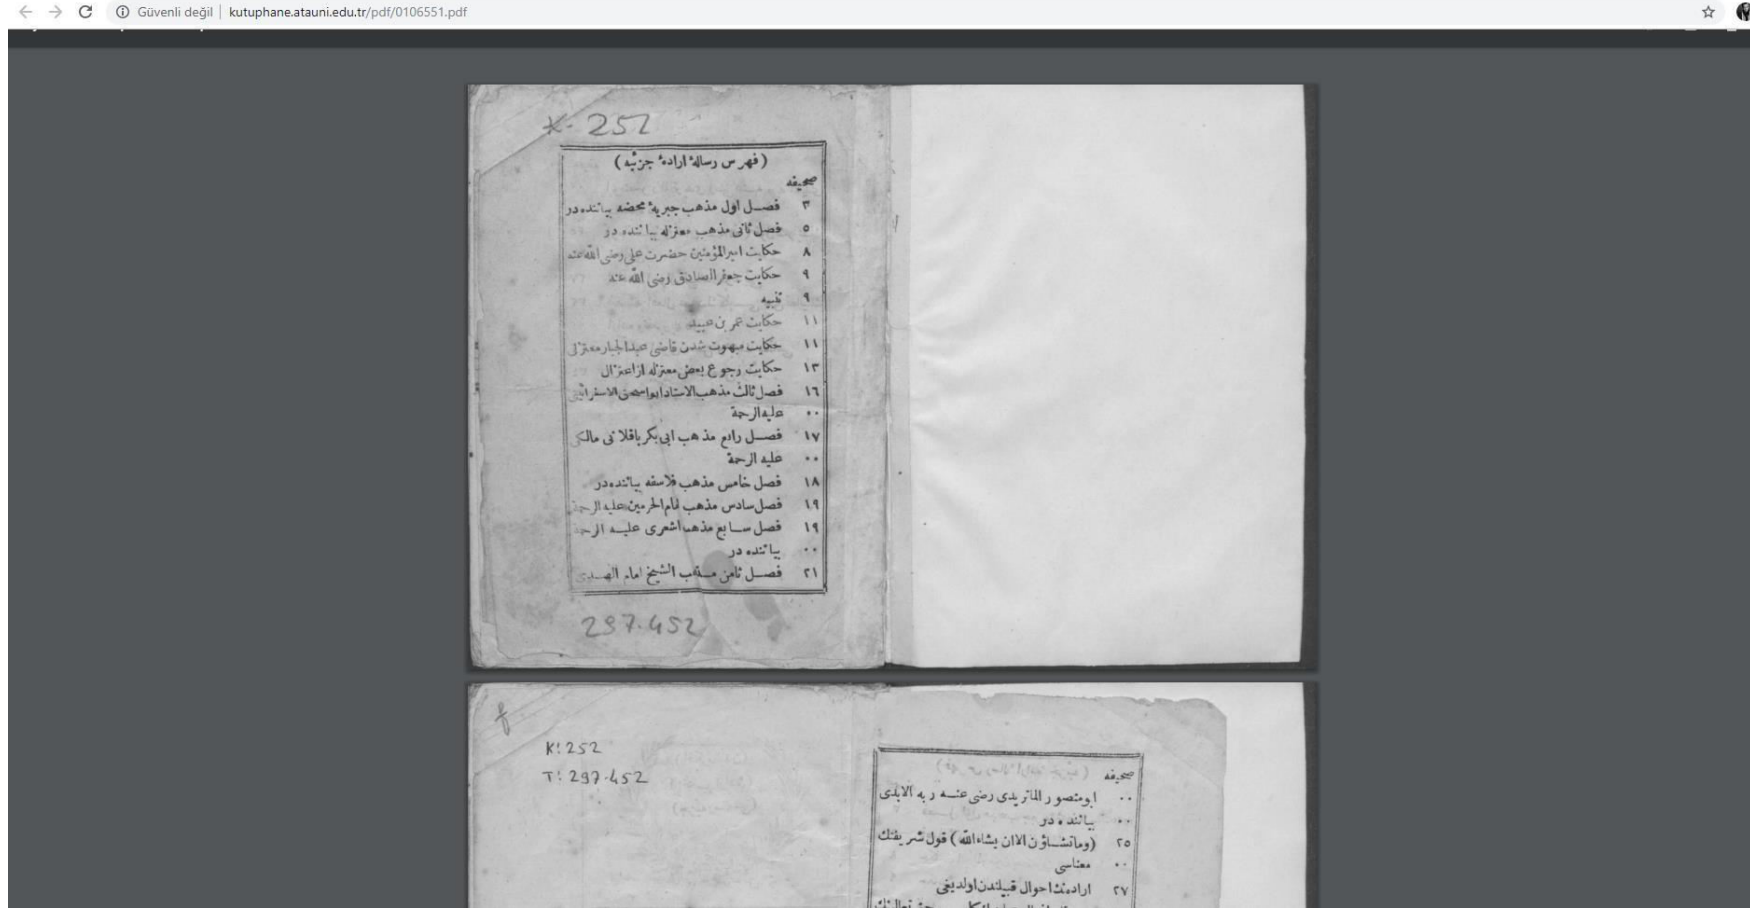 Güvenli değil | kutuphane.atauni.edu.tr/pdf/0106551.pdf
K-252
(فهرس رسالهٔ ارادهٔ جزئیه)
صحیفه
٣ فصل اول مذهب جبریهٔ محضه بیاننده در
٥ فصل ثانی مذهب معتزله بیاننده در
٨ حکایت امیرالمؤمنین حضرت علی رضی الله عنه
٩ حکایت جعفر الصادق رضی الله عنه
٩ تنبیه
١١ حکایت عمر بن عبید
١١ حکایت مبهوت شدن قاضی عبدالجبار معتزلی
١٣ حکایت رجوع بعض معتزله از اعتزال
١٦ فصل ثالث مذهب الاستاد ابواسحق الاسفرائینی
٠٠ علیه الرحمة
١٧ فصل رابع مذهب ابی بکر باقلانی مالکی
٠٠ علیه الرحمة
١٨ فصل خامس مذهب فلاسفه بیاننده در
١٩ فصل سادس مذهب امام الحرمین علیه الرحمة
١٩ فصل سابع مذهب اشعری علیه الرحمة
٠٠ بیاننده در
٢١ فصل ثامن مذهب الشیخ امام الهدی
297.452
K: 252
T: 297.452
صحیفه
٠٠ ابومنصور الماتریدی رضی عنه ربه الابدی
٠٠ بیاننده در
٢٥ (وماتشاؤن الاان یشاءالله) قول شریفنك
٠٠ معناسی
٢٧ ارادەنك احوال قبیلندن اولدیغی